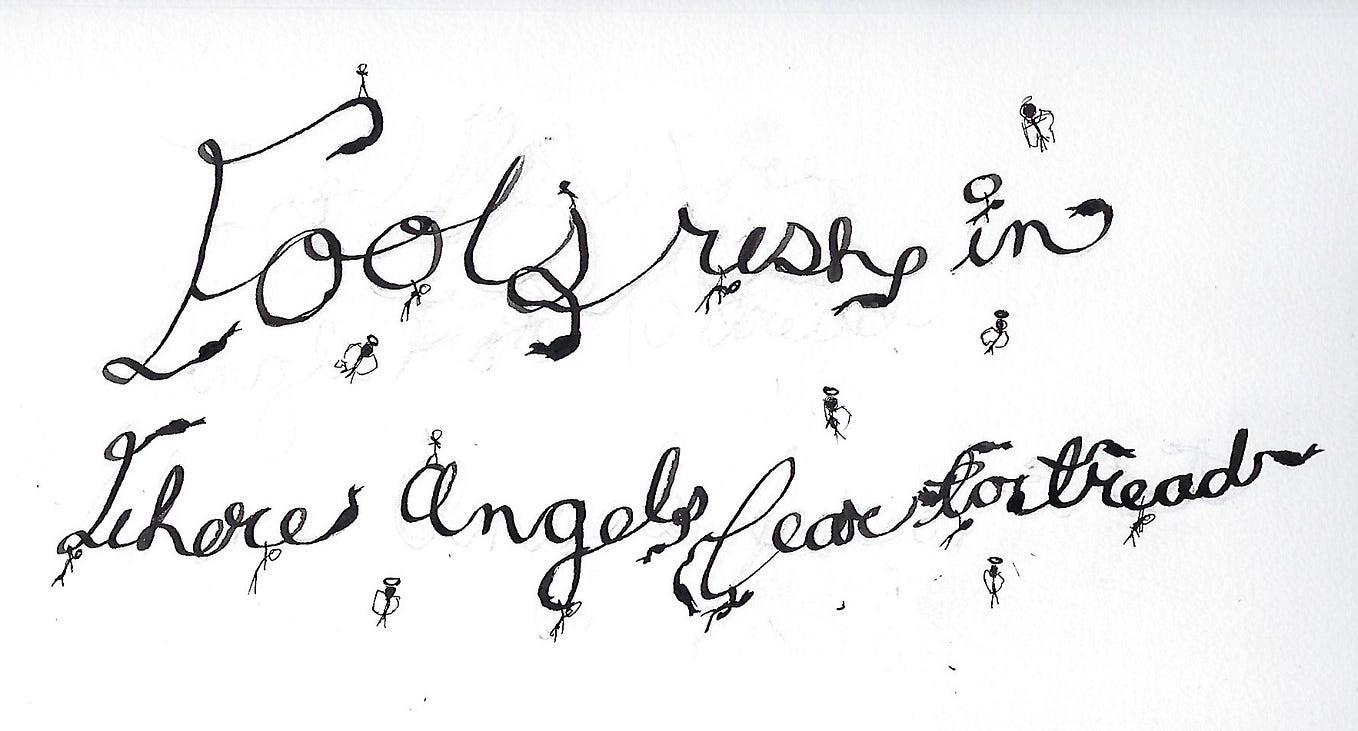 Fools rush in
Where Angels fear to tread